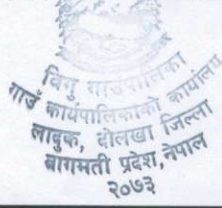 विगु गाउँपालिका
गाउँ कार्यपालिकाको कार्यालय
लाबुक, दोलखा जिल्ला
बागमती प्रदेश, नेपाल
२०७३